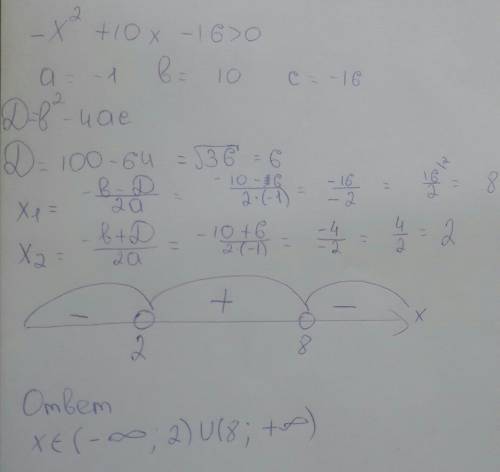 -x² + 10x - 16 > 0
a = -1 b = 10 c = -16
D = b² - 4ac
D = 100 - 64 = √36 = 6
x₁ = (-b - D)/(2a) = (-10 - 6)/(2·(-1)) = (-16)/(-2) = 16/2 = 8
x₂ = (-b + D)/(2a) = (-10 + 6)/(2(-1)) = (-4)/(-2) = 4/2 = 2
- + - x
2 8
Ответ
x ∈ (-∞; 2) ∪ (8; +∞)